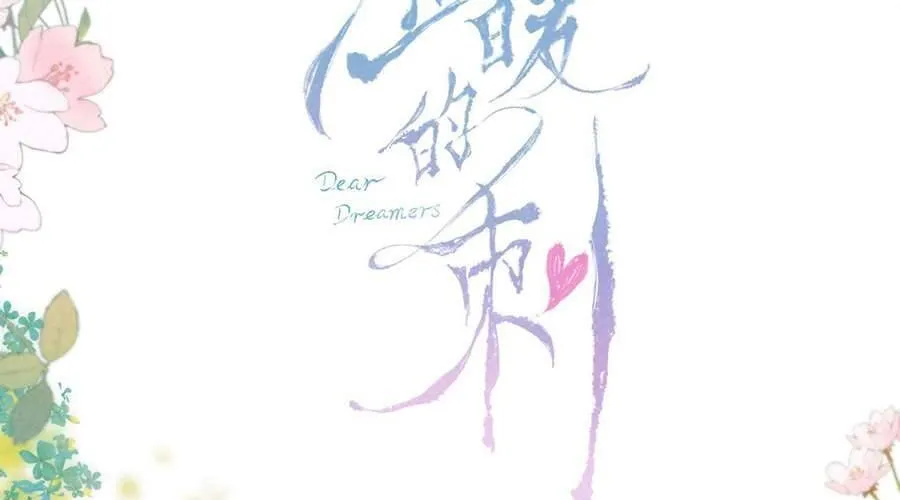 的
Dear
Dreamers
刺